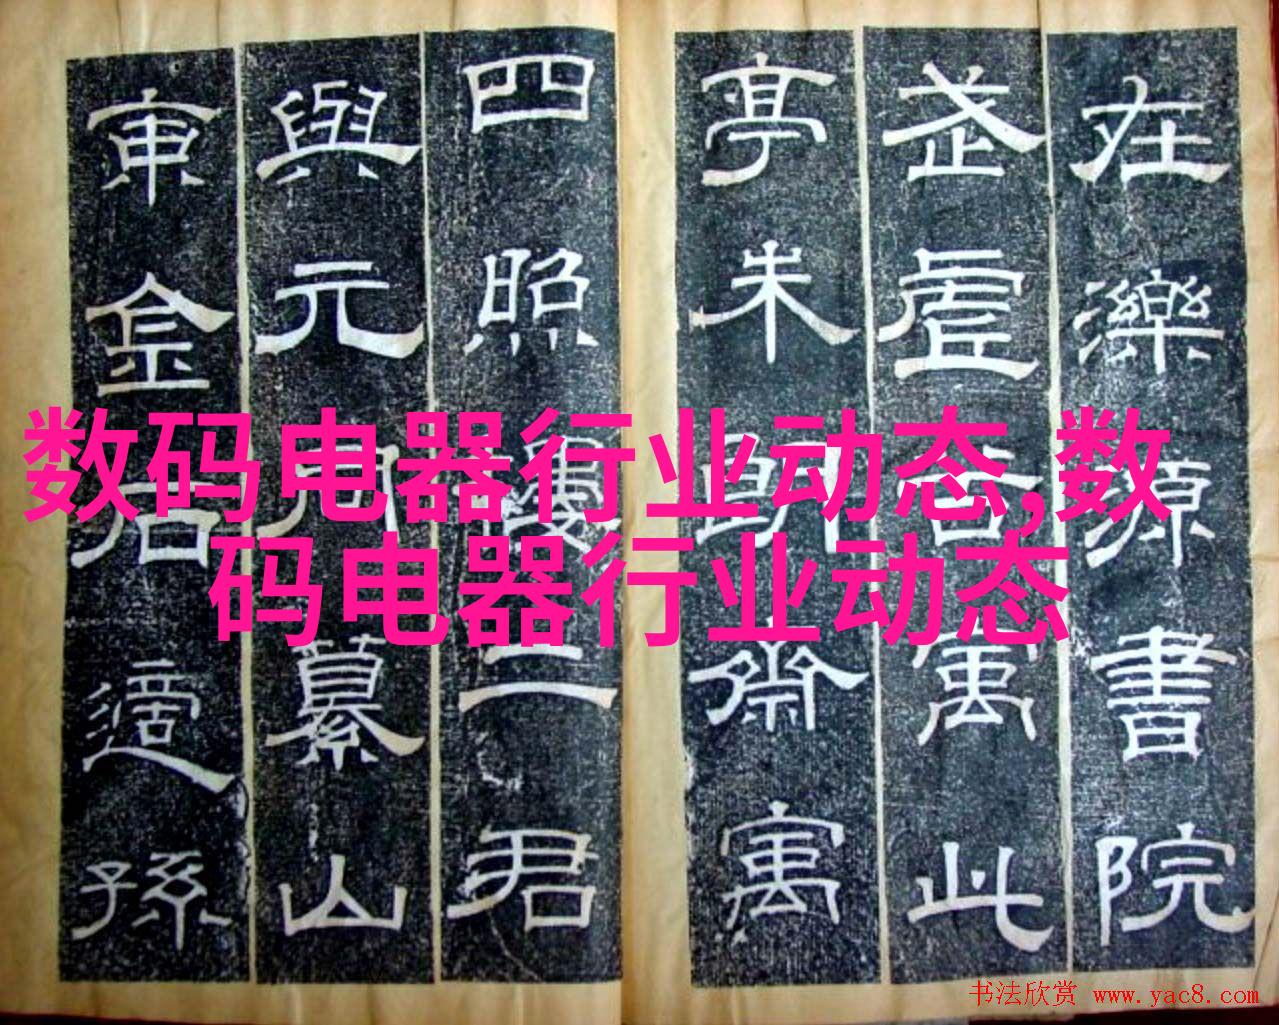 在濼源書院
武虛谷寓此
亭朱朗齋寓
四照樓二君
與元同纂山
東金石適孫
数码电器行业动态,数
码电器行业动态
书法欣赏 www.yac8.com